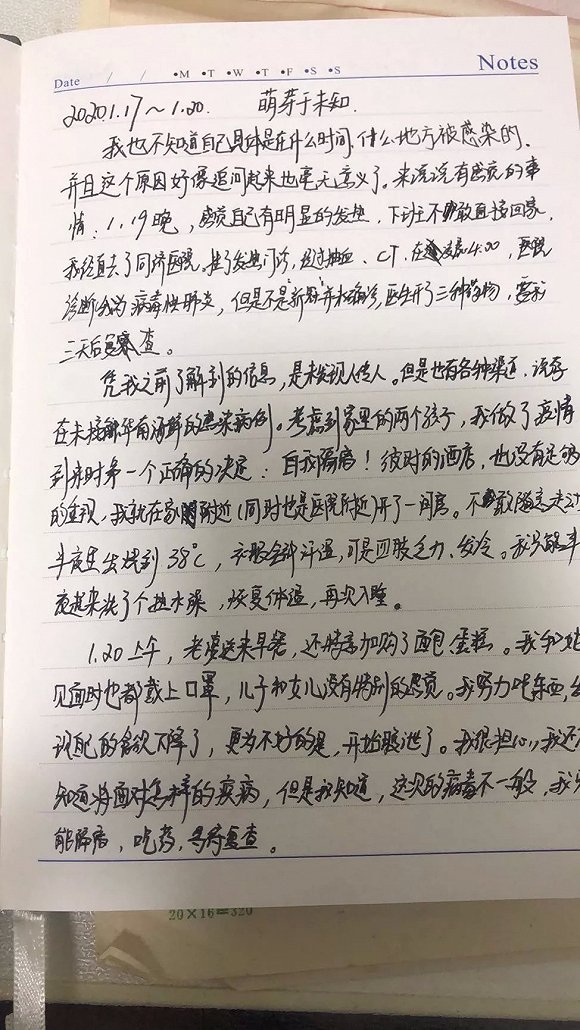 Date / / •M •T •W •T •F •S •S Notes
2020.1.17～1.20. 萌芽于未知.
我也不知道自己具体是在什么时间、什么地方被感染的.
并且这个原因好像追问起来也毫无意义了。来说说有感觉的事
情：1.19晚，感觉自己有明显的发热，下班不敢直接回家，
我径直去了同济医院。挂了发热门诊，经过抽血、CT.在凌晨4:00，医院
诊断为病毒性肺炎，但是不是新冠并未确诊，医生开了三种药物，要我
三天后复查。
凭我之前了解到的信息，是未发现人传人。但是也有各种渠道，说存
在未接触华南海鲜的感染病例。考虑到家里的两个孩子，我做了疫情
到来时第一个正确的决定：自我隔离！彼时的酒店，也没有足够
的重视，我就在家附近(同时也是医院附近)开了一间房。不敢
半夜里发烧到38℃，衣服全部汗湿，可是四肢乏力、发冷。我只能半
夜起来洗了个热水澡，恢复体温，再次入睡。
1.20上午，老婆送来早餐，还特意加购了面包、蛋糕。我和她
见面时也都戴上口罩，儿子和女儿没有特别的感觉。我努力吃东西，
的食欲下降了，更为不好的是，开始腹泄了。我很担心，我还
知道将面对怎样的疾病，但是我知道，这次的病毒不一般，我只
能隔离，吃药，等待复查。
20×16=320